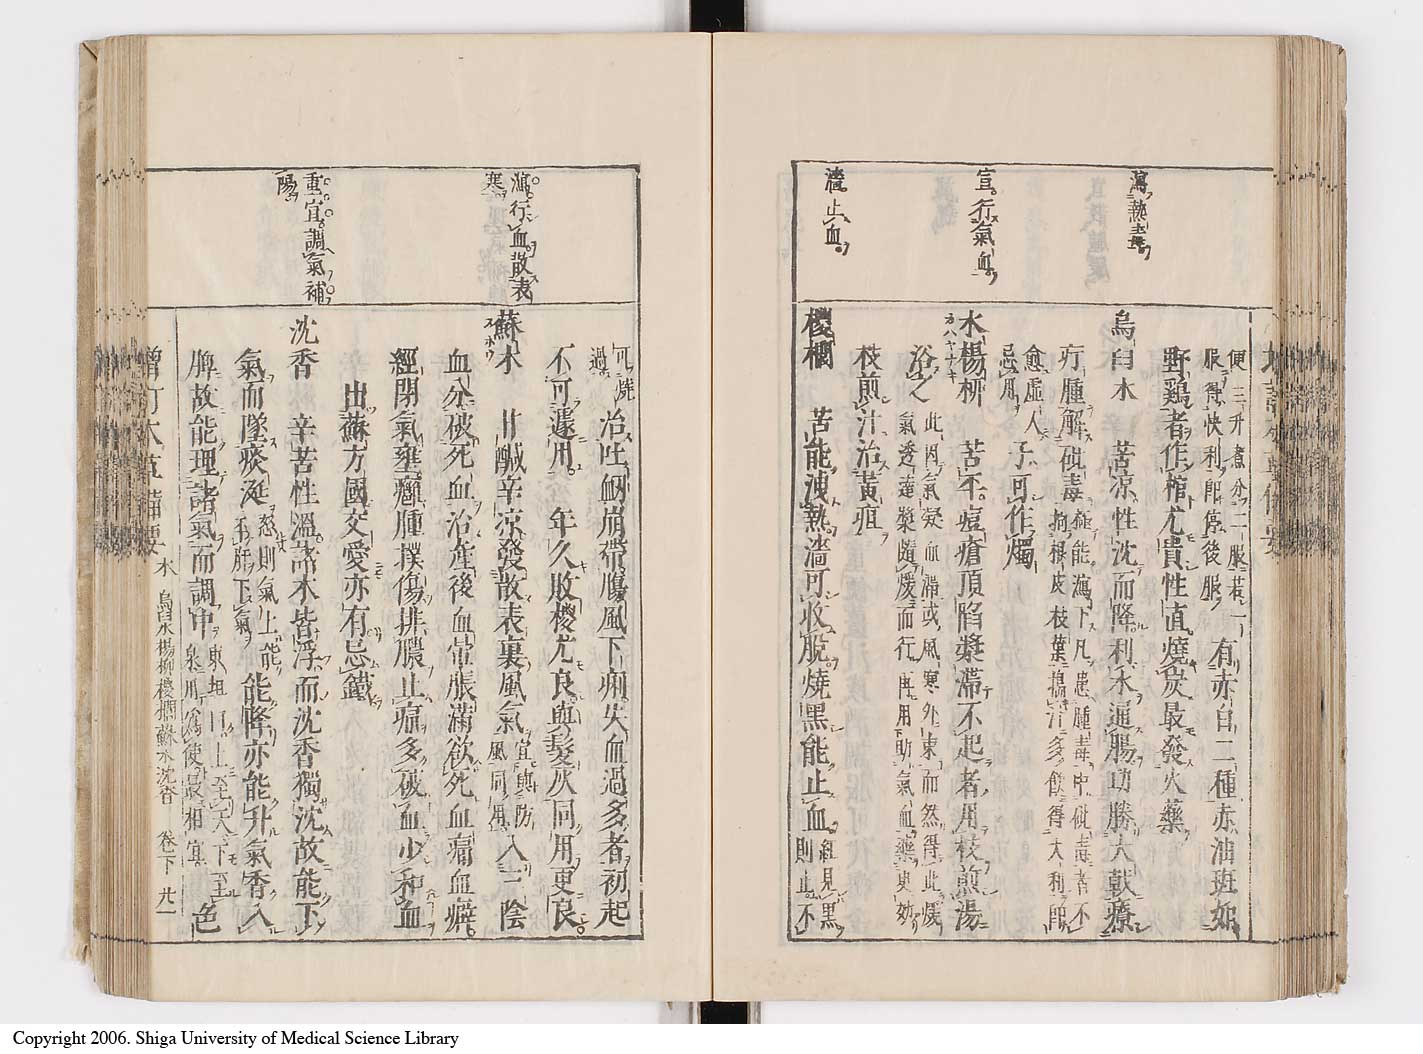 瀉熱毒
宣行氣血
濇止血
便三升煮分二服若一
服得快利即停後服
有赤白二種赤油斑如
野鷄者作棺尤貴性直燒炭最發火藥
烏臼木 苦涼性沈而降利水通腸功勝大戟療
疔腫解砒毒
極能瀉下凡患腫毒中砒毒者不
拘根皮枝葉搗汁多飲得大利即
愈虛人
忌用
子可作燭
水楊柳 苦平痘瘡頂陷漿滯不起者用枝煎湯
浴之
此因氣凝血滯或風寒外束而然得此煖
氣透達漿隨煖而行再用助氣血藥更妙
枝煎汁治黃疸
椶櫚 苦能洩熱濇可收脫燒黑能止血
紅見黑
則止不
可燒
過
治吐衄崩帶腸風下痢失血過多者初起
不可遽用 年久敗椶尤良與髮灰同用更良
蘇木 甘鹹辛涼發散表裏風氣
宜與防
風同用
入三陰
血分破死血治產後血暈脹滿欲死血痛血癖
經閉氣壅癰腫撲傷排膿止痛多破血少和血
出蘇方國交愛亦有忌鐵
沈香 辛苦性溫諸木皆浮而沈香獨沈故能下
氣而墜痰涎
怒則氣上能
平肝下氣
能降亦能升氣香入
脾故能理諸氣而調中
東垣曰上至天下至
泉用為使最相宜
色
瀉行血散表
寒
重宣調氣補
陽
增訂本草備要 木 烏臼水楊柳椶櫚蘇木沈香 卷下 廿一